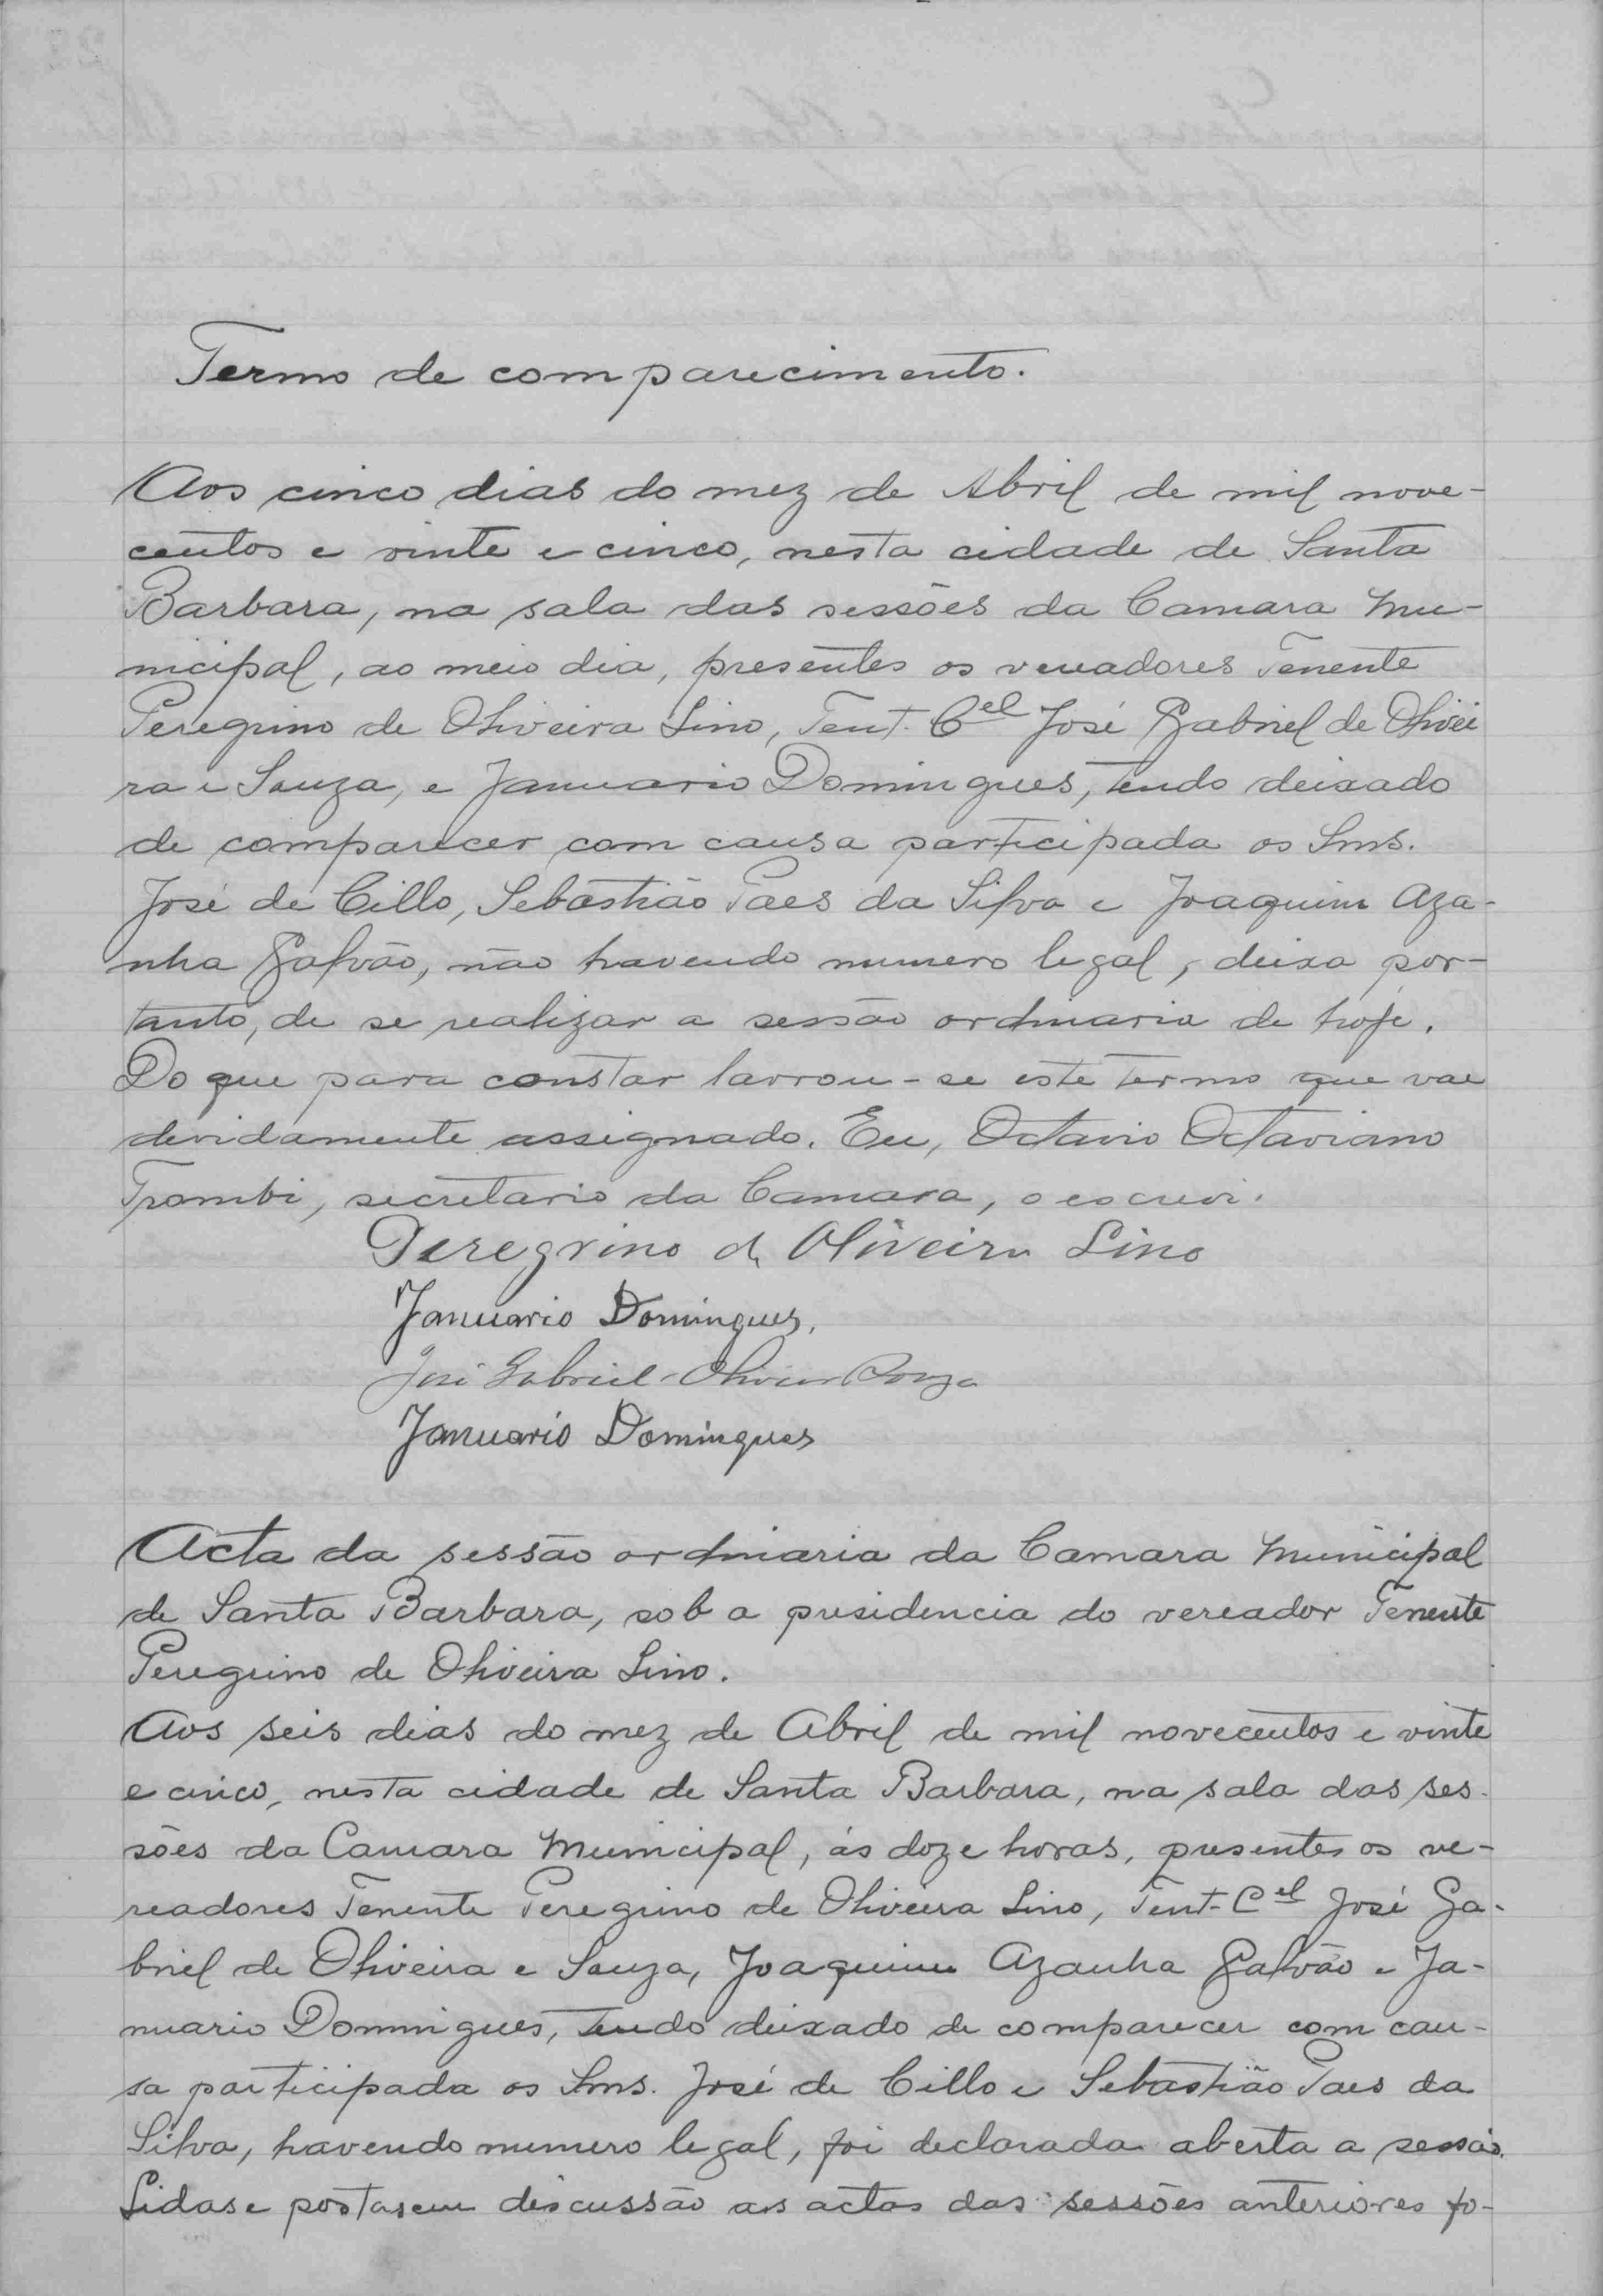 Termo de comparecimento.
Aos cinco dias do mez de Abril de mil nove-
centos e vinte e cinco, nesta cidade de Santa
Barbara, na sala das sessões da Camara Mu-
nicipal, ao meio dia, presentes os vereadores Tenente
Peregrino de Oliveira Lino, Tent. Cel José Gabriel de Olivei
ra e Souza, e Januario Domingues, tendo deixado
de comparecer com causa participada os Snrs.
José de Cillo, Sebastião Paes da Silva e Joaquim Aza-
nha Galvão, não havendo numero legal, deixa por-
tanto, de se realizar a sessão ordinaria de hoje.
Do que para constar lavrou-se este termo que vae
devidamente assignado. Eu, Octavio Octaviano
secretario da Camara, o escrevi.
Peregrino de Oliveira Lino
Januario Domingues.
José Gabriel Oliveira Souza
Januario Domingues
Acta da sessão ordinaria da Camara Municipal
de Santa Barbara, sob a presidencia do vereador Tenente
Peregrino de Oliveira Lino.
Aos seis dias do mez de Abril de mil novecentos e vinte
e cinco, nesta cidade de Santa Barbara, na sala das ses-
sões da Camara Municipal, ás doze horas, presentes os ve-
readores Tenente Peregrino de Oliveira Lino, Tent-Cel José Ga-
briel de Oliveira e Souza, Joaquim Azanha Galvão e Ja-
nuario Domingues, tendo deixado de comparecer com cau-
sa participada os Snrs. José de Cillo e Sebastião Paes da
Silva, havendo numero legal, foi declarada aberta a sessão.
Lidas e postas em discussão as actas das sessões anteriores fo-